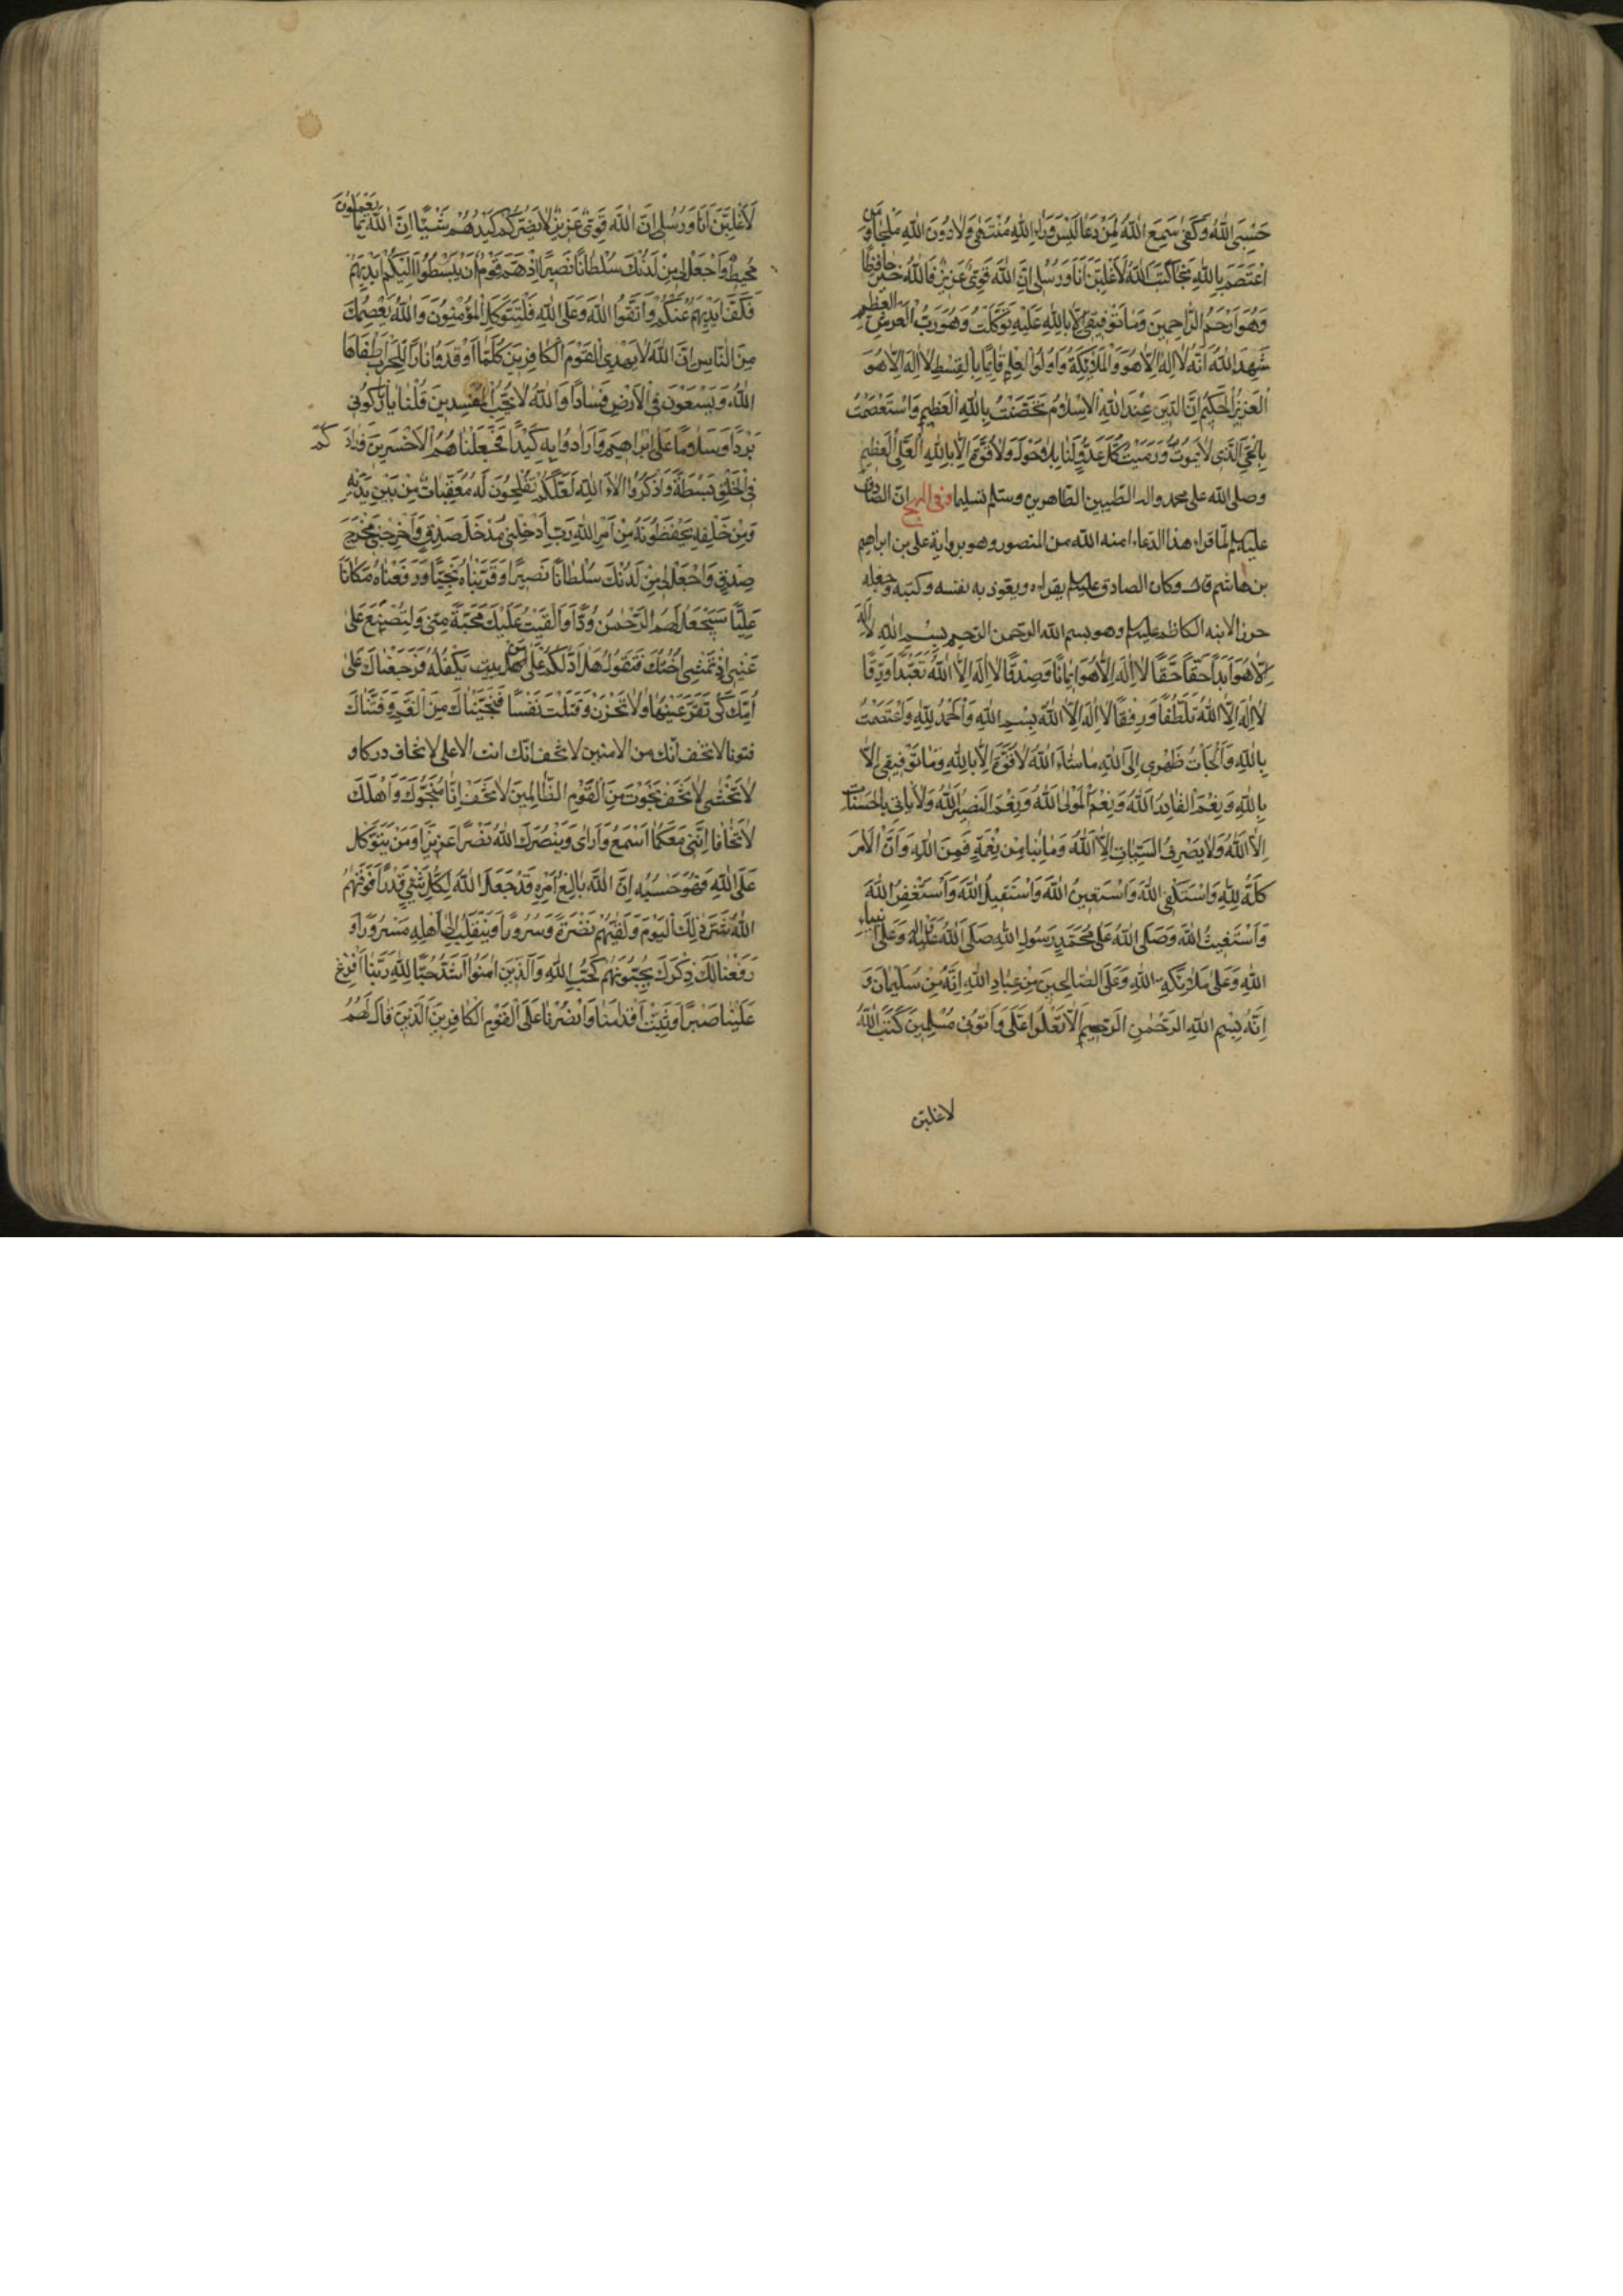 حَسْبِيَ اللهُ وَكَفىٰ سَمِعَ اللهُ لِمَنْ دَعَا لَيْسَ وَرَاءَ اللهِ مُنْتَهىٰ وَلَا دُونَ اللهِ مَلْجَأٌ مَنِ
اعْتَصَمَ بِاللهِ نَجَا كَتَبَ اللهُ لَأَغْلِبَنَّ اَنَا وَرُسُلِي اِنَّ اللهَ قَوِيٌّ عَزِيزٌ فَاللهُ خَيْرٌ حافِظًا
وَهُوَ اَرْحَمُ الرَّاحِمِينَ وَمَا تَوْفِيقِي اِلَّا بِاللهِ عَلَيْهِ تَوَكَّلْتُ وَهُوَ رَبُّ الْعَرْشِ العظيم
شَهِدَ اللهُ اَنَّهُ لَا اِلٰهَ اِلَّا هُوَ وَالْمَلَائِكَةُ وَاُولُوا الْعِلْمِ قَائِمًا بِالْقِسْطِ لَا اِلٰهَ اِلَّا هُوَ
الْعَزِيزُ الْحَكِيمُ اِنَّ الدِّينَ عِنْدَ اللهِ الْاِسْلَامُ تَحَصَّنْتُ بِاللهِ الْعَظِيمِ وَاسْتَعْصَمْتُ
بِالْحَيِّ الَّذِي لَا يَمُوتُ وَرَمَيْتُ كُلَّ عَدُوٍّ لَنَا بِلَا حَوْلَ وَلَا قُوَّةَ اِلَّا بِاللهِ الْعَلِيِّ الْعَظِيمِ
وصلى الله على محمد واله الطيبين الطاهرين وسلم تسليما وفى المهج ان الصادق
عليه السلم لما قراء هذا الدعاء امنه الله من المنصور وهو برواية على بن ابراهيم
بن هاشم قال وكان الصادق عليه السلم يقراه ويعوذ به نفسه وكتبه وجعله
حرزا لابنه الكاظم عليه السلم وهو بسم الله الرحمن الرحيم بِسْمِ اللهِ لَا اِلٰهَ
اِلَّا هُوَ اَبَدًا حَقًّا حَقًّا لَا اِلٰهَ اِلَّا هُوَ اِيمَانًا وَصِدْقًا لَا اِلٰهَ اِلَّا اللهُ تَعَبُّدًا وَرِقًّا
لَا اِلٰهَ اِلَّا اللهُ تَلَطُّفًا وَرِفْقًا لَا اِلٰهَ اِلَّا اللهُ بِسْمِ اللهِ وَالْحَمْدُ لِلّٰهِ وَاعْتَصَمْتُ
بِاللهِ وَاَلْجَأْتُ ظَهْرِي اِلَى اللهِ مَا شَاءَ اللهُ لَا قُوَّةَ اِلَّا بِاللهِ وَمَا تَوْفِيقِي اِلَّا
بِاللهِ وَنِعْمَ القَادِرُ اللهُ وَنِعْمَ الْمَوْلَى اللهُ وَنِعْمَ النَّصِيرُ اللهُ وَلَا يَأْتِي بِالْحَسَنَاتِ
اِلَّا اللهُ وَلَا يَصْرِفُ السَّيِّئَاتِ اِلَّا اللهُ وَمَا بِنَا مِنْ نِعْمَةٍ فَمِنَ اللهِ وَاَنَّ الْاَمْرَ
كُلَّهُ لِلّٰهِ وَاَسْتَكْفِي اللهَ وَاَسْتَعِينُ اللهَ وَاَسْتَقِيلُ اللهَ وَاَسْتَغْفِرُ اللهَ
وَاَسْتَغِيثُ اللهَ وَصَلَّى اللهُ عَلَى مُحَمَّدٍ رَسُولِ اللهِ صَلَّى اللهُ عَلَيْهِ وَاٰلِهِ وَعَلَى اَنْبِيَاءِ
اللهِ وَعَلَى مَلَائِكَةِ اللهِ وَعَلَى الصَّالِحِينَ مِنْ عِبَادِ اللهِ اِنَّهُ مِنْ سُلَيْمَانَ وَ
اِنَّهُ بِسْمِ اللهِ الرَّحْمٰنِ الرَّحِيمِ اَلَّا تَعْلُوا عَلَيَّ وَأْتُونِي مُسْلِمِينَ كَتَبَ اللهُ
لاغلبن
لَاَغْلِبَنَّ اَنَا وَرُسُلِي اِنَّ اللهَ قَوِيٌّ عَزِيزٌ لَا يَضُرُّكُمْ كَيْدُهُمْ شَيْئًا اِنَّ اللهَ بِمَا يَعْمَلُونَ
مُحِيطٌ وَاجْعَلْ لِي مِنْ لَدُنْكَ سُلْطَانًا نَصِيرًا اِذْ هَمَّ قَوْمٌ اَنْ يَبْسُطُوا اِلَيْكُمْ اَيْدِيَهُمْ
فَكَفَّ اَيْدِيَهُمْ عَنْكُمْ وَاتَّقُوا اللهَ وَعَلَى اللهِ فَلْيَتَوَكَّلِ الْمُؤْمِنُونَ وَاللهُ يَعْصِمُكَ
مِنَ النَّاسِ اِنَّ اللهَ لَا يَهْدِي الْقَوْمَ الْكَافِرِينَ كُلَّمَا اَوْقَدُوا نَارًا لِلْحَرْبِ اَطْفَاَهَا
اللهُ وَيَسْعَوْنَ فِي الْاَرْضِ فَسَادًا وَاللهُ لَا يُحِبُّ الْمُفْسِدِينَ قُلْنَا يَا نَارُ كُونِي
بَرْدًا وَسَلَامًا عَلَى اِبْرَاهِيمَ وَاَرَادُوا بِهِ كَيْدًا فَجَعَلْنَا هُمُ الْاَخْسَرِينَ وَزَادَكُمْ
فِي الْخَلْقِ بَسْطَةً وَاذْكُرُوا اٰلَاءَ اللهِ لَعَلَّكُمْ تُفْلِحُونَ لَهُ مُعَقِّبَاتٌ مِنْ بَيْنِ يَدَيْهِ
وَمِنْ خَلْفِهِ يَحْفَظُونَهُ مِنْ اَمْرِ اللهِ رَبِّ اَدْخِلْنِي مُدْخَلَ صِدْقٍ وَاَخْرِجْنِي مُخْرَجَ
صِدْقٍ وَاجْعَلْ لِي مِنْ لَدُنْكَ سُلْطَانًا نَصِيرًا وَقَرَّبْنَاهُ نَجِيًّا وَرَفَعْنَاهُ مَكَانًا
عَلِيًّا سَيَجْعَلُ لَهُمُ الرَّحْمٰنُ وُدًّا وَاَلْقَيْتُ عَلَيْكَ مَحَبَّةً مِنِّي وَلِتُصْنَعَ عَلَى
عَيْنِي اِذْ تَمْشِي اُخْتُكَ فَتَقُولُ هَلْ اَدُلُّكُمْ عَلَى اَهْلِ بَيْتٍ يَكْفُلُهُ فَرَجَعْنَاكَ عَلَى
اُمِّكَ كَيْ تَقَرَّ عَيْنُهَا وَلَا تَحْزَنَ وَقَتَلْتَ نَفْسًا فَنَجَّيْنَاكَ مِنَ الْغَمِّ وَفَتَنَّاكَ
فتونا لاتخف انك من الامنين لاتخف انك انت الاعلى لاتخاف دركا و
لَا تَخْشَى لَا تَخَفْ نَجَوْتَ مِنَ الْقَوْمِ الظَّالِمِينَ لَا تَخَفْ اِنَّا مُنَجُّوكَ وَاَهْلَكَ
لَا تَخَافَا اِنَّنِي مَعَكُمَا اَسْمَعُ وَاَرَىٰ وَيَنْصُرَكَ اللهُ نَصْرًا عَزِيزًا وَمَنْ يَتَوَكَّلْ
عَلَى اللهِ فَهُوَ حَسْبُهُ اِنَّ اللهَ بَالِغُ اَمْرِهِ قَدْ جَعَلَ اللهُ لِكُلِّ شَيْءٍ قَدْرًا فَوَقَيٰهُمُ
اللهُ شَرَّ ذٰلِكَ الْيَوْمِ وَلَقّٰيهُمْ نَضْرَةً وَسُرُورًا وَيَنْقَلِبُ اِلىٰ اَهْلِهِ مَسْرُورًا وَ
رَفَعْنَا لَكَ ذِكْرَكَ يُحِبُّونَهُمْ كَحُبِّ اللهِ وَالَّذِينَ اٰمَنُوا اَشَدُّ حُبًّا لِلّٰهِ رَبَّنَا اَفْرِغْ
عَلَيْنَا صَبْرًا وَثَبِّتْ اَقْدَامَنَا وَانْصُرْنَا عَلَى الْقَوْمِ الْكَافِرِينَ الَّذِينَ قَالَ لَهُمُ